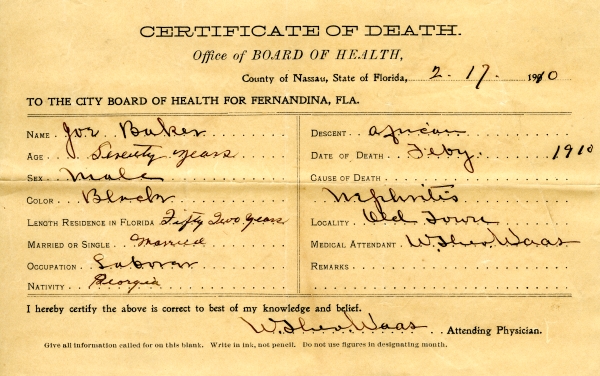 CERTIFICATE OF DEATH.
Office of BOARD OF HEALTH,
County of Nassau, State of Florida, 2. 17. 1910
TO THE CITY BOARD OF HEALTH FOR FERNANDINA, FLA.
NAME Joe Baker
AGE Seventy years
SEX Male
COLOR Black
LENGTH RESIDENCE IN FLORIDA Fifty Two years
MARRIED OR SINGLE Married
OCCUPATION Laborer
NATIVITY Georgia
DESCENT African
DATE OF DEATH Feby. 1910
CAUSE OF DEATH
Nephritis
LOCALITY Old Town
MEDICAL ATTENDANT W. Theo. Waas
REMARKS
I hereby certify the above is correct to best of my knowledge and belief.
W. Theo. Waas Attending Physician.
Give all information called for on this blank. Write in ink, not pencil. Do not use figures in designating month.